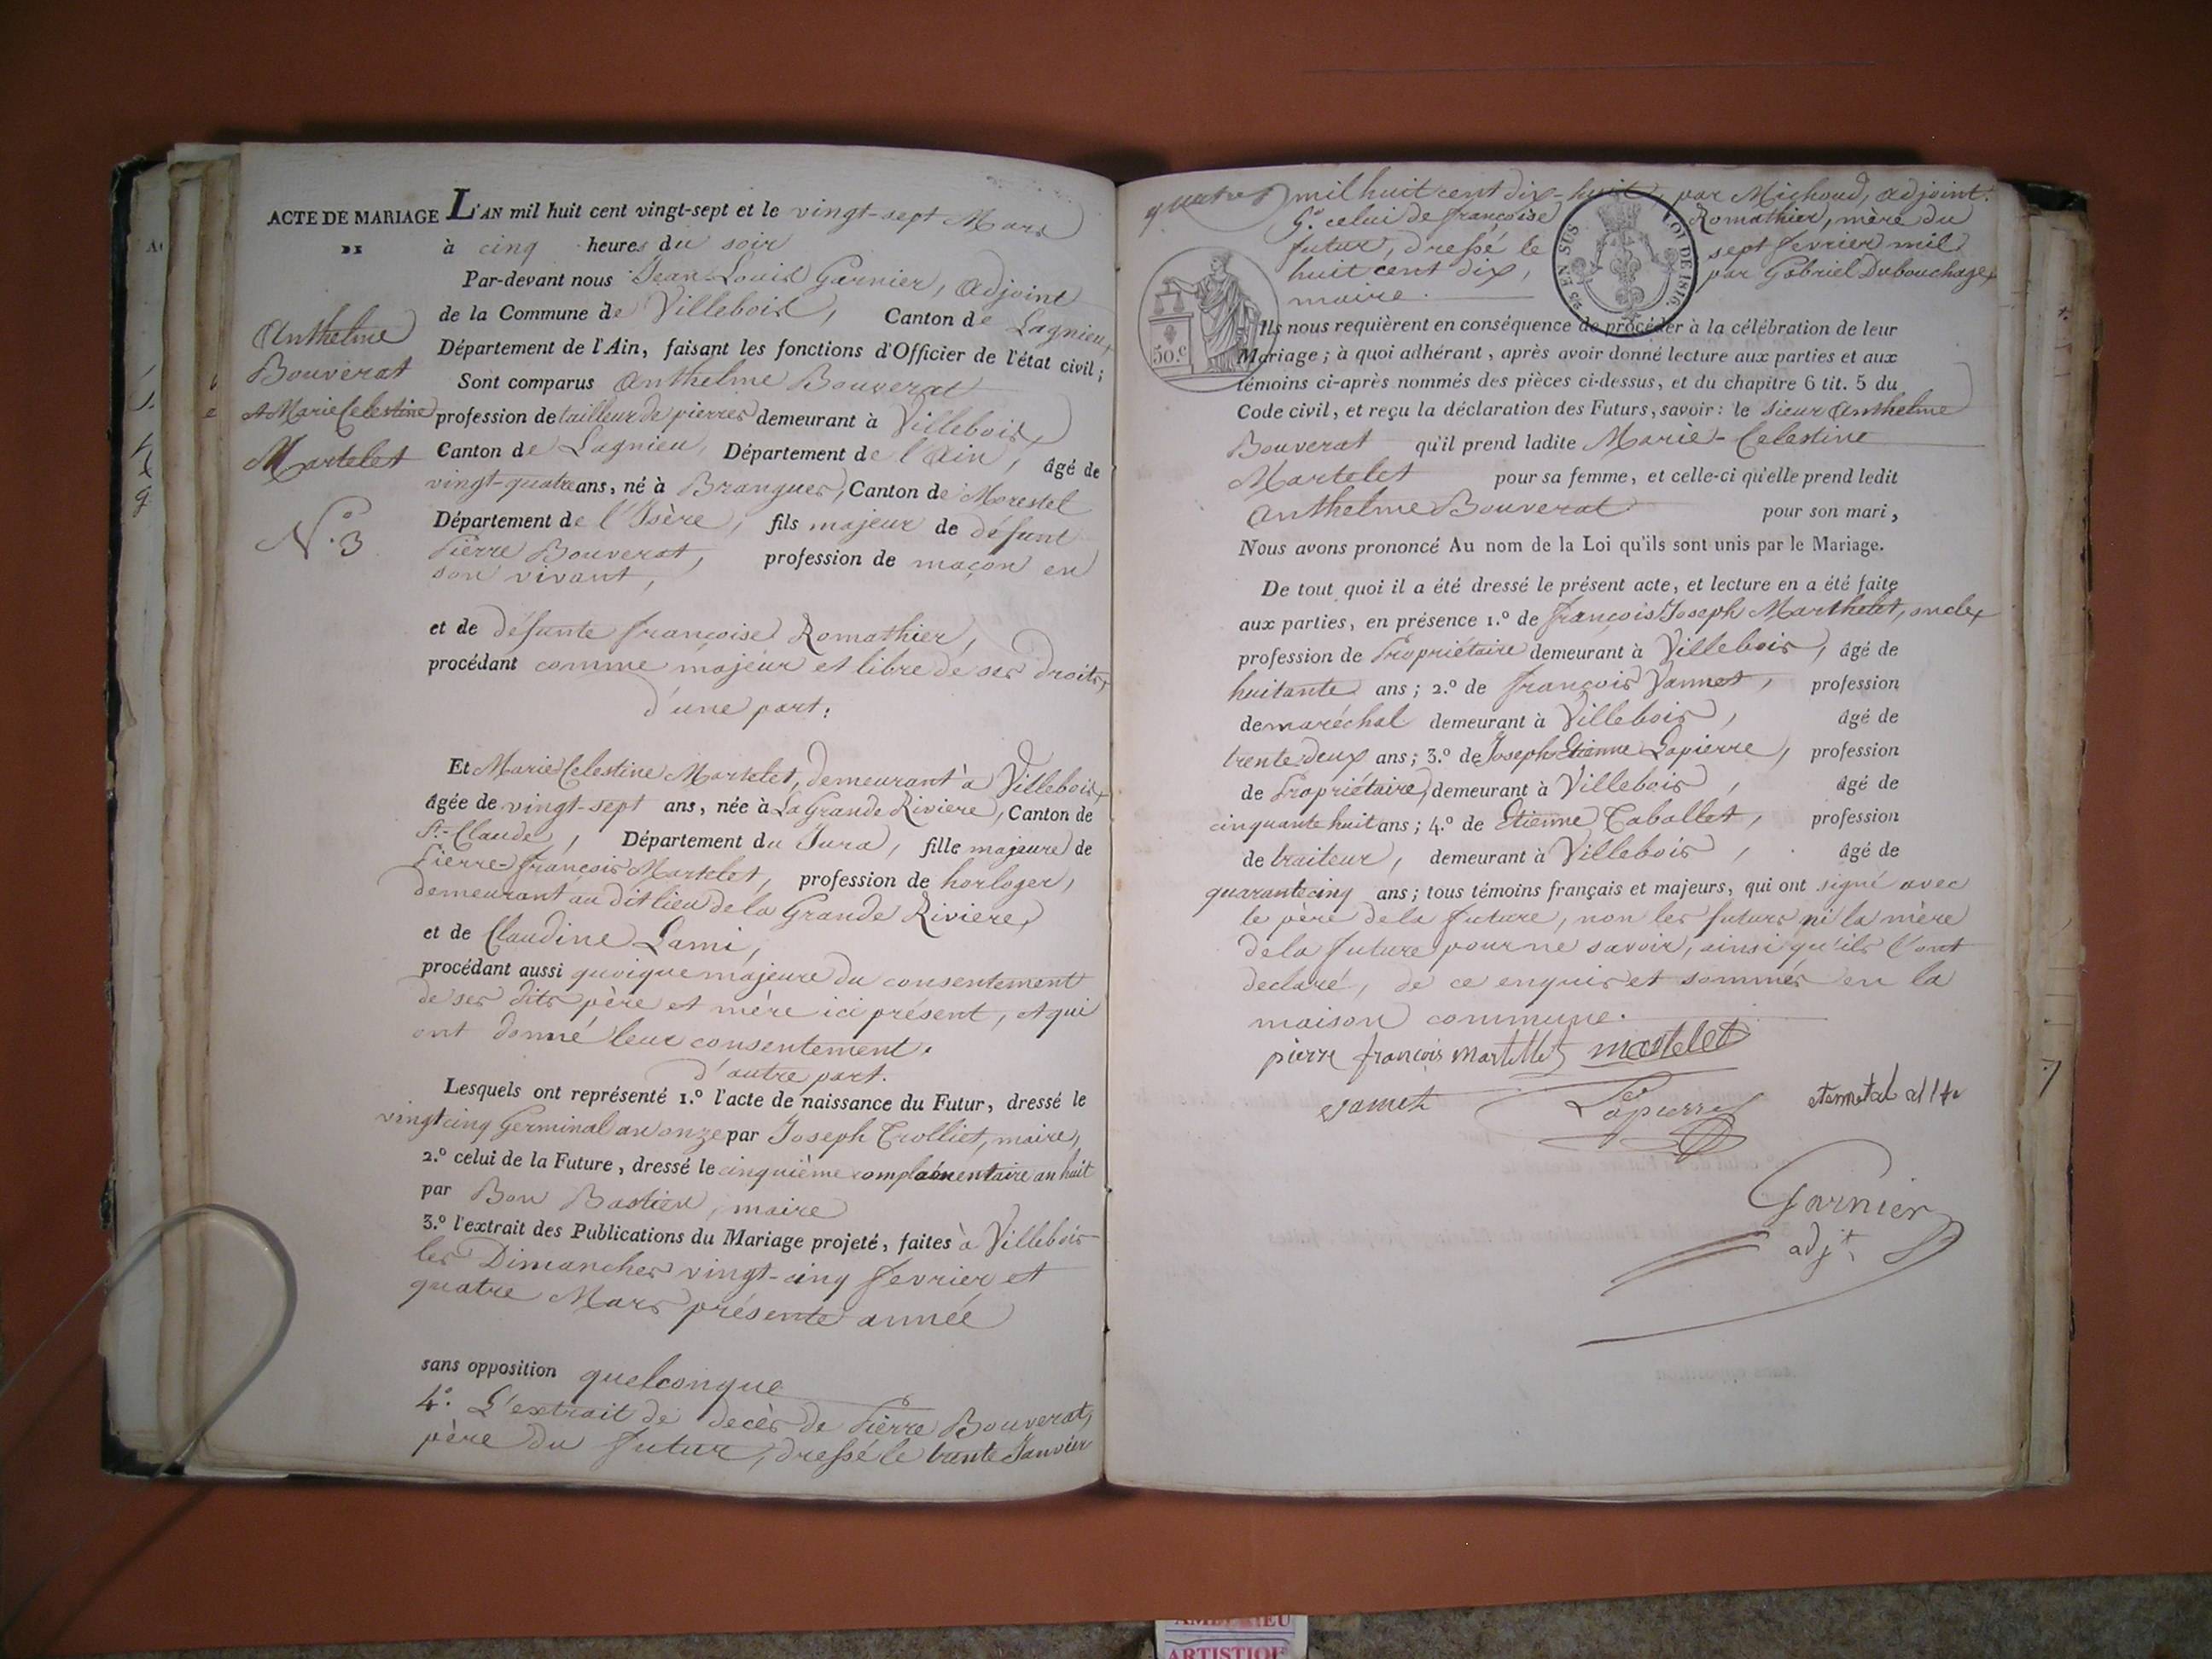 ACTE DE MARIAGE
DE
Anthelme
Bouverat
et Marie Celestine
Martelet
N.º 3
L'AN mil huit cent vingt-sept et le vingt-sept Mars
à cinq heures du soir
Par-devant nous Jean-Louis Garnier, adjoint
de la Commune de Villebois, Canton de Lagnieu,
Département de l'Ain, faisant les fonctions d'Officier de l'état civil ;
Sont comparus Anthelme Bouverat
profession de tailleur de pierres demeurant à Villebois,
Canton de Lagnieu, Département de l'Ain, âgé de
vingt-quatre ans, né à Brangues, Canton de Morestel
Département de l'Isère, fils majeur de défunt
Pierre Bouverat, profession de maçon en
son vivant,
et de défunte françoise Romathier,
procédant comme majeur et libre de ses droits,
d'une part ;
Et Marie Celestine Martelet, demeurant à Villebois,
âgée de vingt-sept ans, née à La Grande Riviere, Canton de
St.-Claude, Département du Jura, fille majeure de
Pierre-françois Martelet, profession de horloger,
demeurant au dit lieu de la Grande Riviere,
et de Claudine Lami,
procédant aussi quoique majeure du consentement
de ses dits père et mère ici présent, et qui
ont donné leur consentement.
d'autre part.
Lesquels ont représenté 1.º l'acte de naissance du Futur, dressé le
vingt cinq Germinal an onze par Joseph Trolliet, maire,
2.º celui de la Future, dressé le cinquième complémentaire an huit
par Bon Bastien, maire
3.º l'extrait des Publications du Mariage projeté, faites à Villebois
les Dimanches vingt-cinq fevrier et
quatre Mars présente année
sans opposition quelconque
4.º L'extrait de decès de Pierre Bouverat,
père du futur, dressé le trente Janvier
mil huit cent dix-huit, par Michoud, adjoint.
5.º celui de françoise Romathier, mère du
futur, dressé le sept fevrier mil
huit cent dix, par Gabriel Dubouchage,
maire.
25 EN SUS
LOI DE 1816.
50.c
Ils nous requièrent en conséquence de procéder à la célébration de leur
Mariage ; à quoi adhérant, après avoir donné lecture aux parties et aux
témoins ci-après nommés des pièces ci-dessus, et du chapitre 6 tit. 5 du
Code civil, et reçu la déclaration des Futurs, savoir : le sieur Anthelme
Bouverat qu'il prend ladite Marie-Celestine
Martelet pour sa femme, et celle-ci qu'elle prend ledit
Anthelme Bouverat pour son mari,
Nous avons prononcé Au nom de la Loi qu'ils sont unis par le Mariage.
De tout quoi il a été dressé le présent acte, et lecture en a été faite
aux parties, en présence 1.º de françois Joseph Marthelet, oncle,
profession de Propriétaire demeurant à Villebois, âgé de
huitante ans ; 2.º de françois Vannet, profession
de maréchal demeurant à Villebois, âgé de
trente deux ans ; 3.º de Joseph Etienne Lapierre, profession
de Propriétaire, demeurant à Villebois, âgé de
cinquante huit ans ; 4.º de Etienne Caballet, profession
de traiteur, demeurant à Villebois, âgé de
quarante cinq ans ; tous témoins français et majeurs, qui ont signé avec
le père de la future, non les futurs ni la mère
de la future pour ne savoir, ainsi qu'ils l'ont
declaré, de ce enquis et sommés en la
maison commune.
pierre françois martellet martelet
vannet Lapierre
Garnier
adj.t
ARTISTIQUE